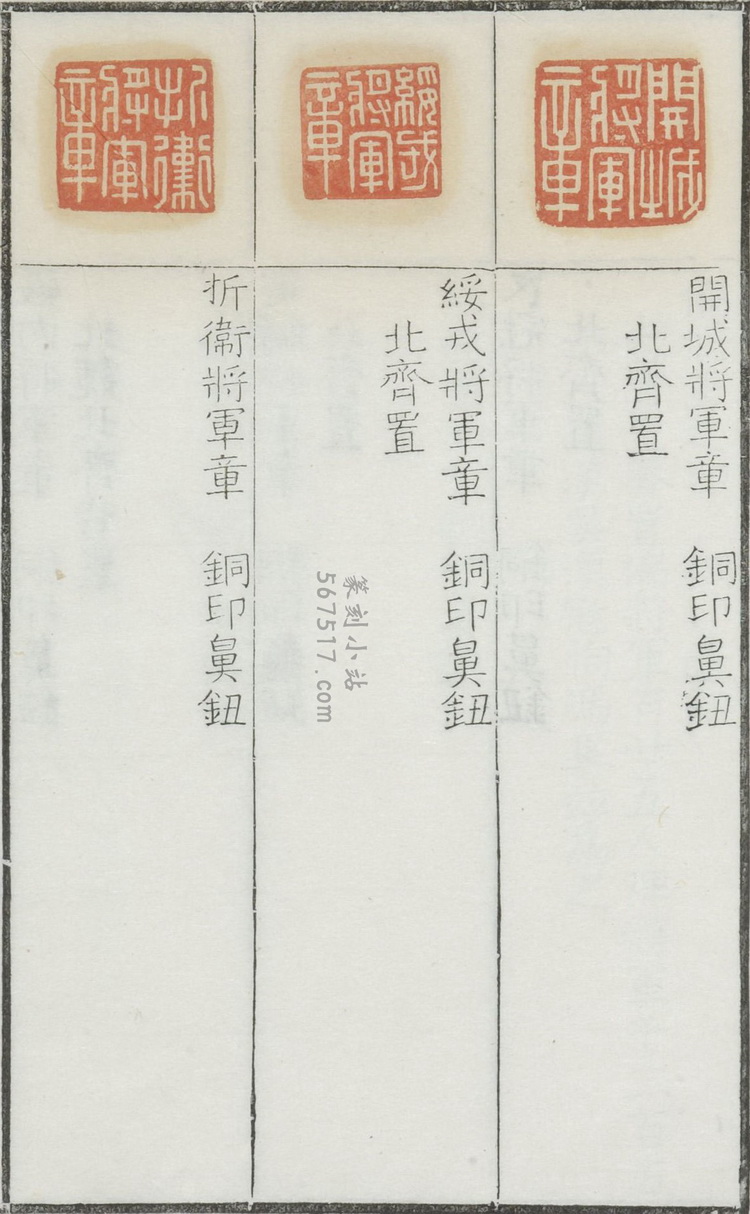 開城將軍章
開城將軍章　銅印鼻鈕
北齊置
綏戎將軍章
綏戎將軍章　銅印鼻鈕
北齊置
折衝將軍章
折衛將軍章　銅印鼻鈕
篆刻小站
567517.com